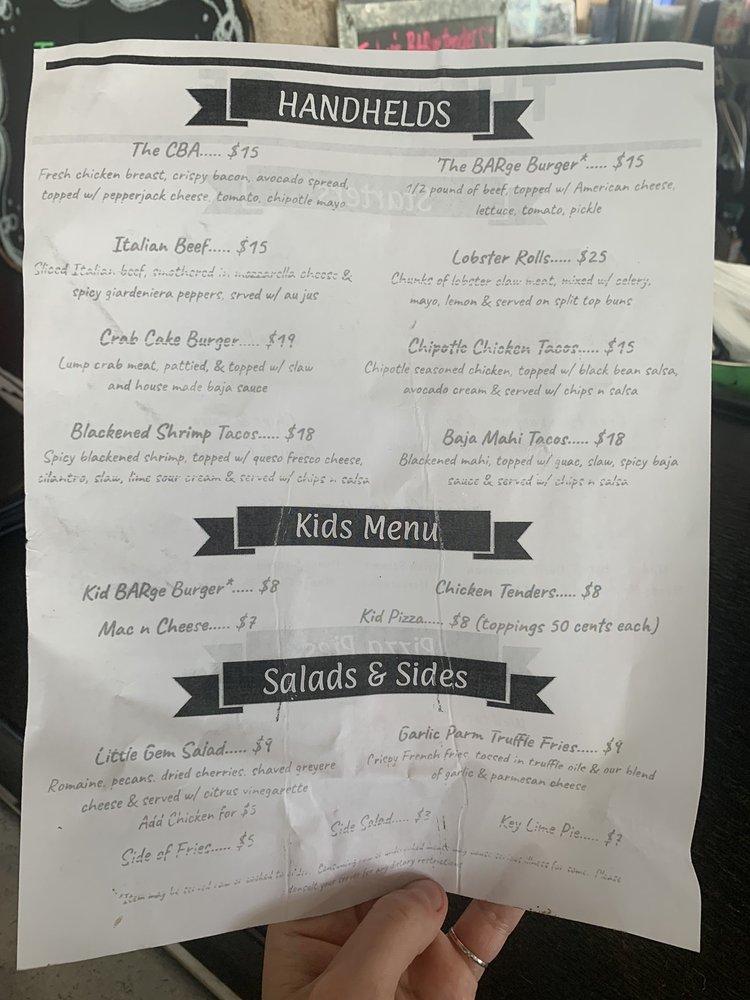 HANDHELDS
The CBA..... $15
Fresh chicken breast, crispy bacon, avocado spread,
topped w/ pepperjack cheese, tomato, chipotle mayo
The BARge Burger*..... $15
1/2 pound of beef, topped w/ American cheese,
lettuce, tomato, pickle
Italian Beef..... $15
Sliced Italian beef, smothered in mozzarella cheese &
spicy giardeniera peppers, srved w/ au jus
Lobster Rolls..... $25
Chunks of lobster claw meat, mixed w/ celery,
mayo, lemon & served on split top buns
Crab Cake Burger..... $19
Lump crab meat, pattied, & topped w/ slaw
and house made baja sauce
Chipotle Chicken Tacos..... $15
Chipotle seasoned chicken, topped w/ black bean salsa,
avocado cream & served w/ chips n salsa
Blackened Shrimp Tacos..... $18
Spicy blackened shrimp, topped w/ queso fresco cheese,
cilantro, slaw, lime sour cream & served w/ chips n salsa
Baja Mahi Tacos..... $18
Blackened mahi, topped w/ guac, slaw, spicy baja
sauce & served w/ chips n salsa
Kids Menu
Kid BARge Burger*..... $8
Chicken Tenders..... $8
Mac n Cheese..... $7
Kid Pizza..... $8 (toppings 50 cents each)
Salads & Sides
Little Gem Salad..... $9
Romaine, pecans, dried cherries, shaved greyere
cheese & served w/ citrus vinegarette
Add Chicken for $5
Garlic Parm Truffle Fries..... $9
Crispy French fries tossed in truffle oile & our blend
of garlic & parmesan cheese
Side of Fries..... $5
Side Salad..... $3
Key Lime Pie..... $7
*Item may be served raw or cooked to order. Consuming raw or undercooked meats may cause serious illness for some. Please
consult your server for any dietary restrictions